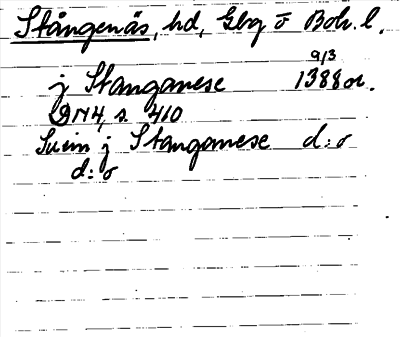 Stångenäs, hd, Gbg o Boh. l.
9/3
j Stanganese 1388 or.
DN4, s. 410
Suein j Stanganese d:o
d:o